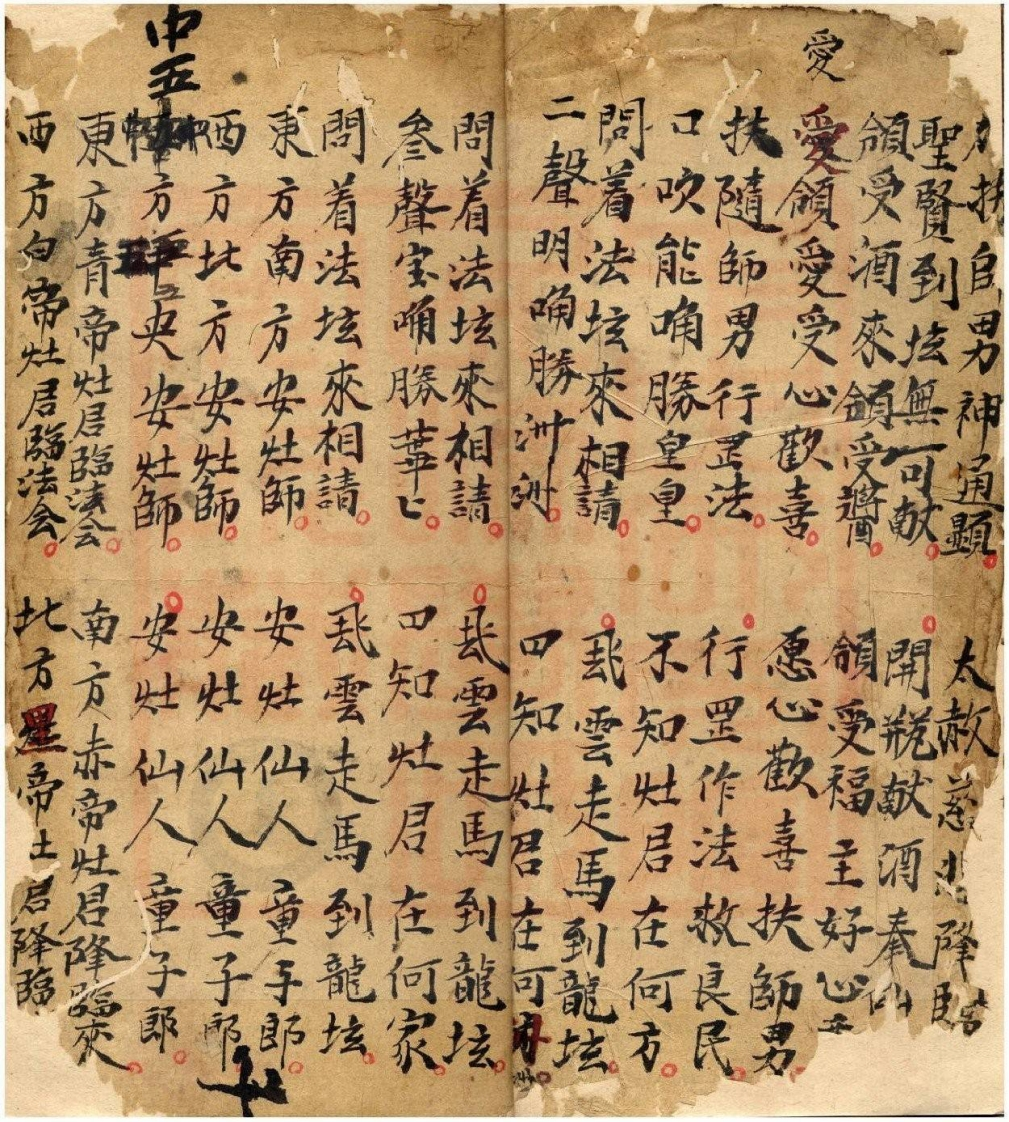 扶自男神通顕 太赦慈悲降臨
聖賢到坛無可献 開瓶献酒奉仙
領受酒來領受 領受福主好心
愛
愛領愛受心歡喜 愿心歡喜扶師男
扶隨師男行罡法 行罡作法救良民
口吹能唃勝皇皇 不知灶君在何方
問着法坛來相請 飛雲走馬到龍坛
二聲明唃勝洲洲 四知灶君在何
問着法坛來相請 飛雲走馬到龍坛
叁聲宝唃勝華 四知灶君在何家
問着法坛來相請 飛雲走馬到龍坛
東方南方安灶師 安灶仙人童子郎
西方北方安灶師 安灶仙人童子郎
中五
方央安灶師 安灶仙人童子郎
東方青帝灶君臨法会 南方赤帝灶君降臨來
西方白帝灶君臨法会 北方黑帝土君降臨